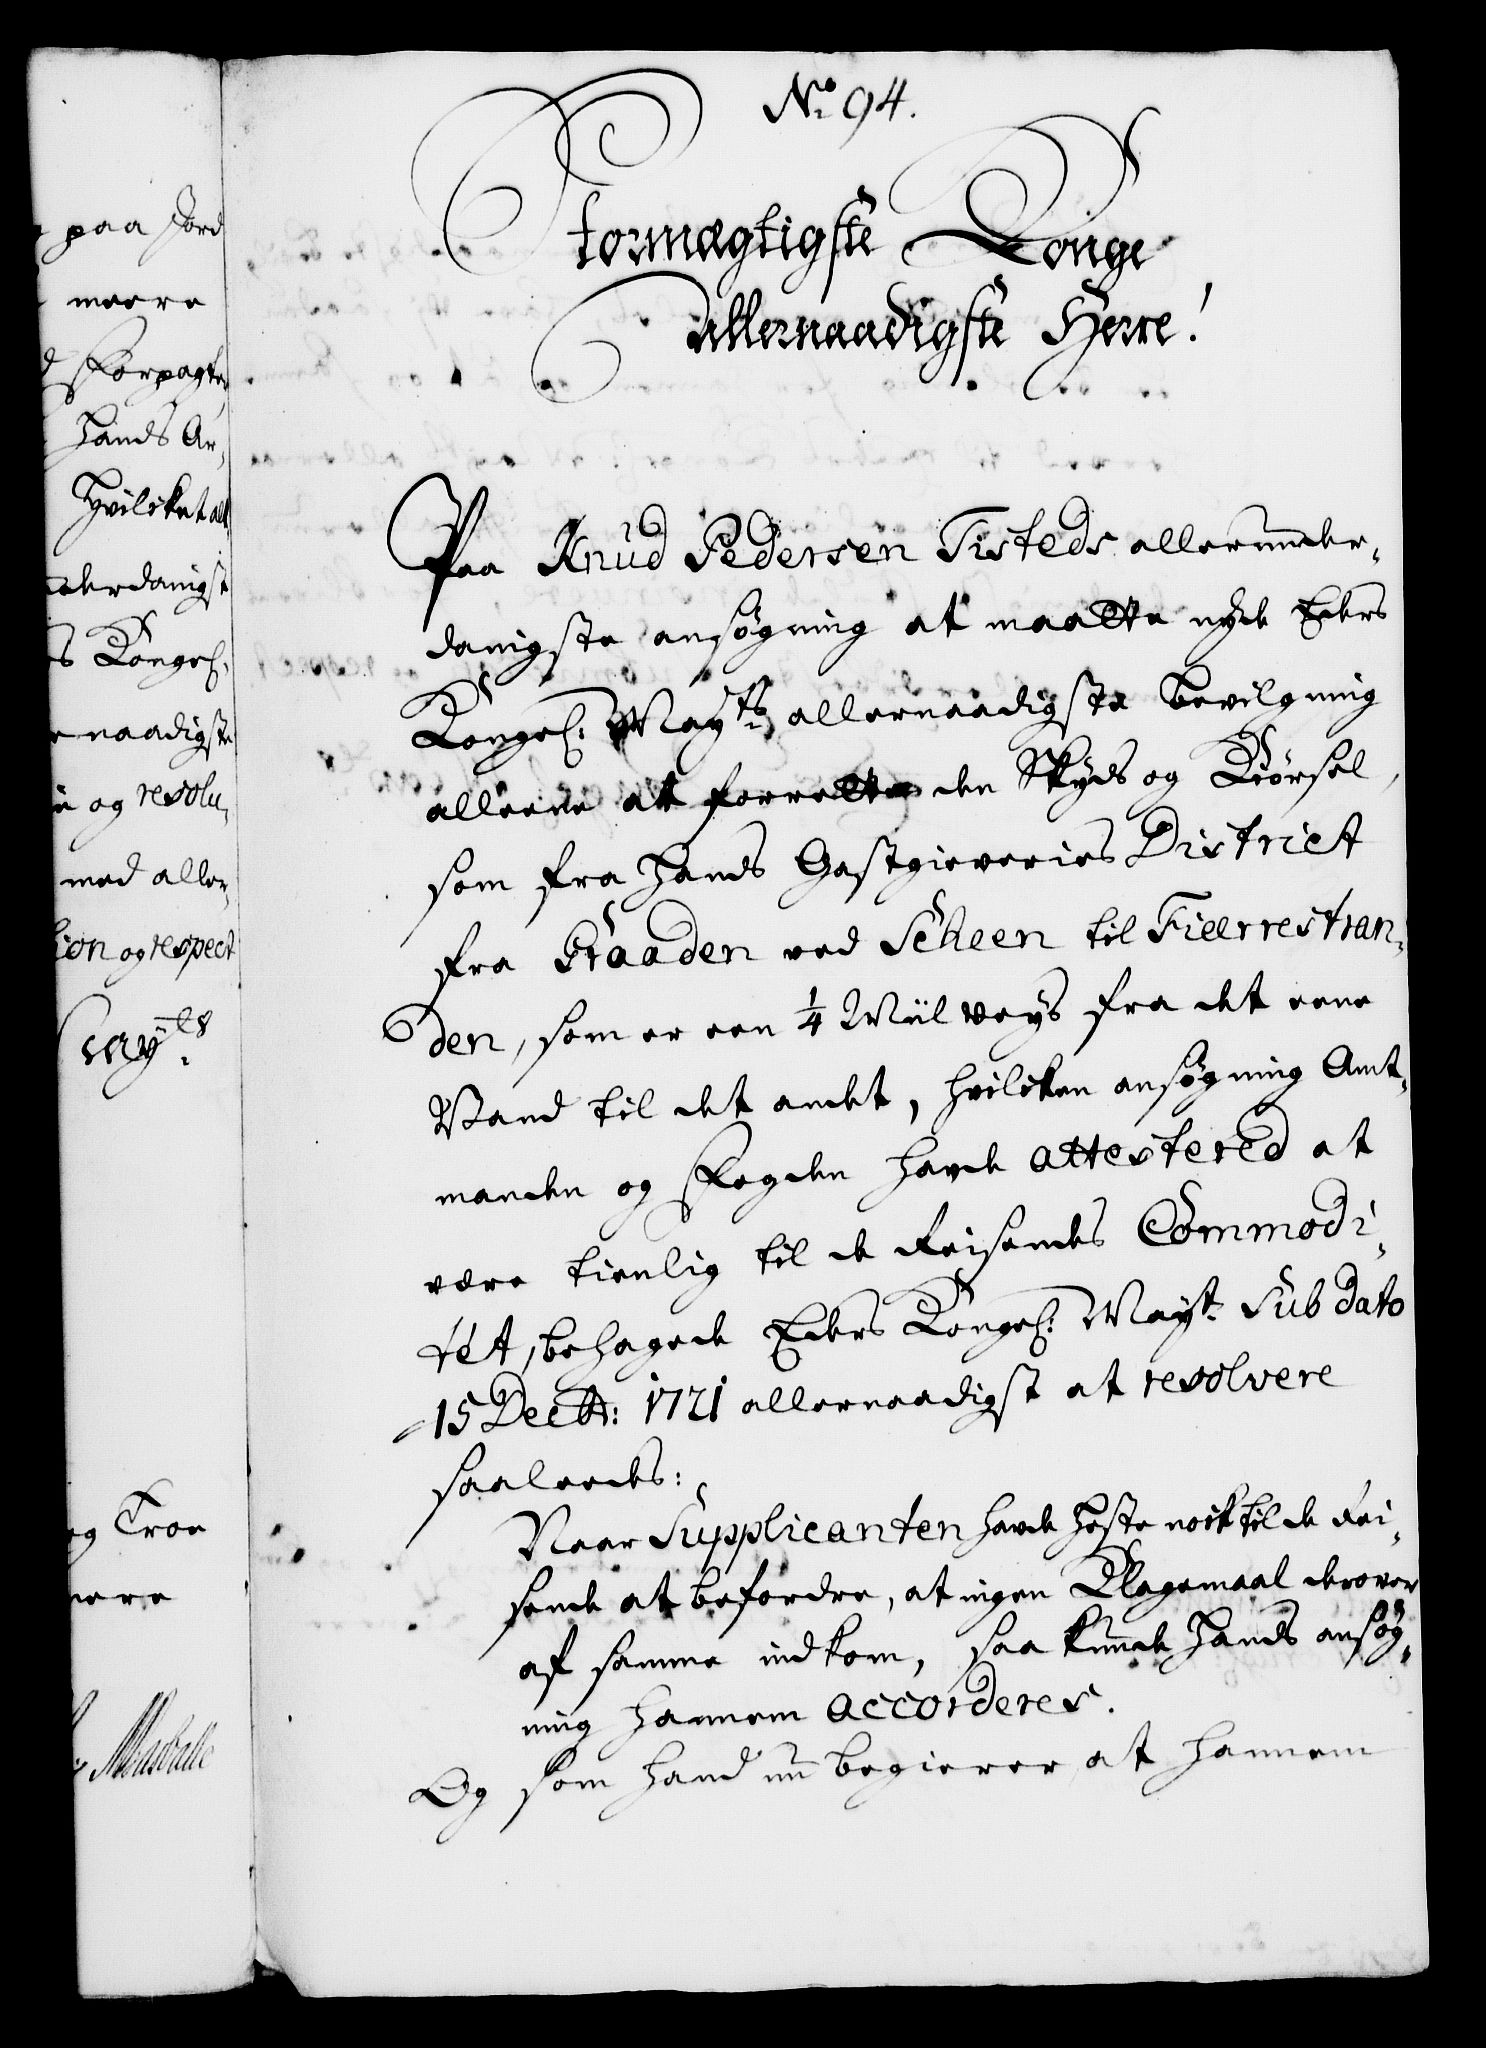 No 94.
Stormægtigste Konge
Allernaadigste Herre!
Paa Knud Pedersen Tisteds allerunder-
danigste ansøgning at maatte nyde Eders
Kongel: Mayts allernaadigste bevilgning
alleene at forrette den Skyds og Kiørsel,
som fra hands Gastgieveries District
fra Staaden ved Scheen til Fierrestran-
den, som er een 1/4 Miil veys fra det eene
Vand til det andet, hvilcken ansøgning Amt-
manden og Fogden hafde attestered at
være tienlig til de Reisendes Commodi-
tét, behagede Eders Kongel: Mayt. Sub dato
15 Decbr: 1721 allernaadigst at resolvere
saaleedes:
Naar Supplicanten hafde Heste nock til de Rei-
sende at befordre, at ingen Klagemaal derover
af samme indkom, saa kunde hands ansøg-
ning hannem accorderes.
Og som hand nu begierer at hannem
paa Jord
meere
Forpagter
hands Ar-
hvilcket alt
underdanigst
Kongel.
naadigste
og resolu-
med aller-
tion og respect
Mayts
og Troe